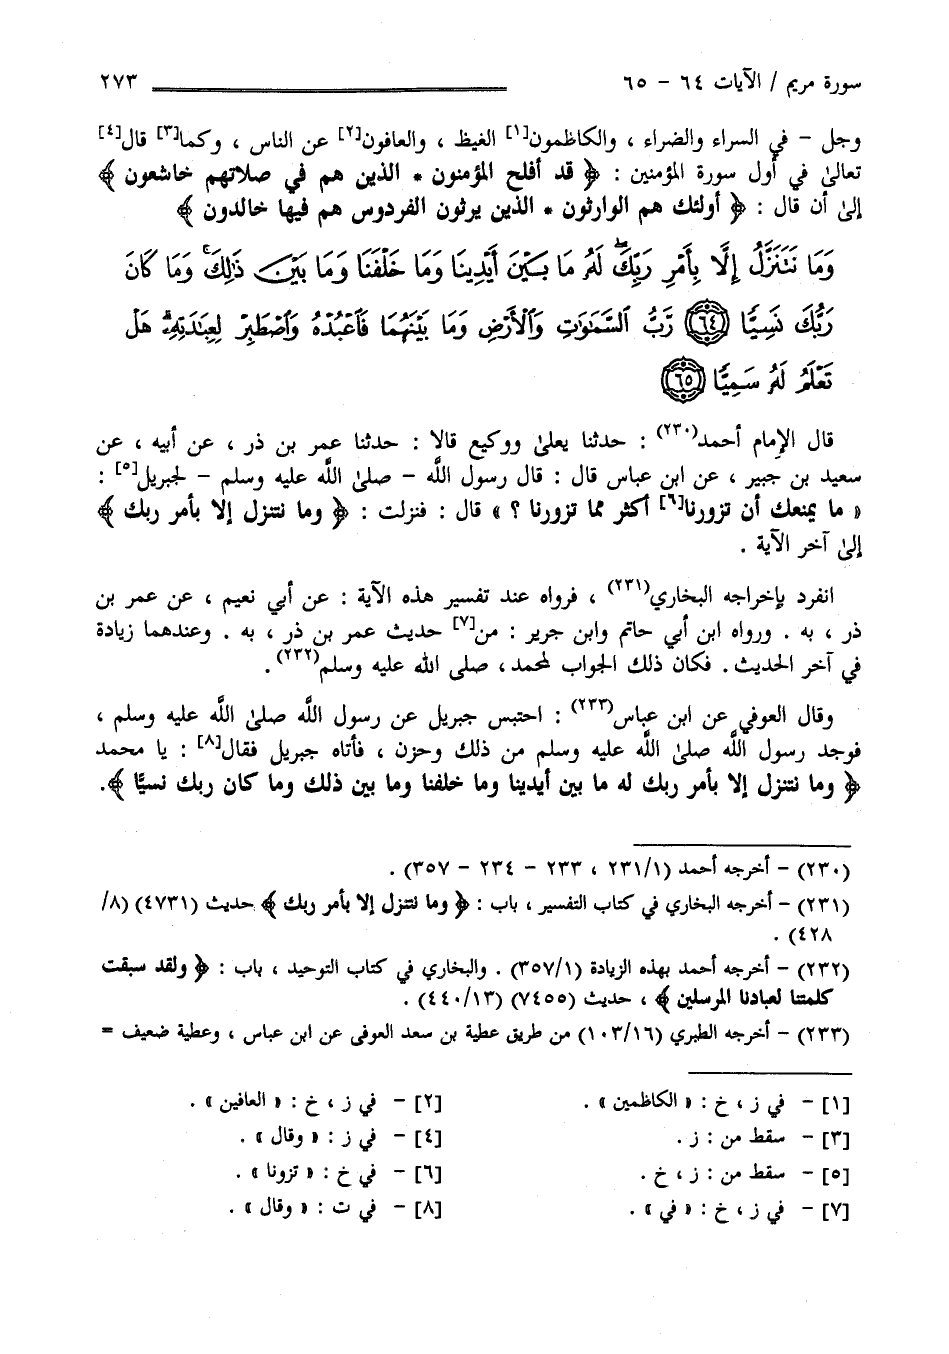 سورة مريم / الآيات ٦٤ - ٦٥ ٢٧٣
وجل - في السراء والضراء ، والكاظمون[١] الغيظ ، والعافون[٢] عن الناس ، وكما[٣] قال[٤]
تعالىٰ في أول سورة المؤمنين : ﴿ قد أفلح المؤمنون * الذين هم في صلاتهم خاشعون ﴾
إلىٰ أن قال : ﴿ أولئك هم الوارثون * الذين يرثون الفردوس هم فيها خالدون ﴾
وَمَا نَتَنَزَّلُ إِلَّا بِأَمْرِ رَبِّكَ ۖ لَهُ مَا بَيْنَ أَيْدِينَا وَمَا خَلْفَنَا وَمَا بَيْنَ ذَٰلِكَ ۚ وَمَا كَانَ
رَبُّكَ نَسِيًّا ٦٤ رَّبُّ السَّمَٰوَٰتِ وَالْأَرْضِ وَمَا بَيْنَهُمَا فَاعْبُدْهُ وَاصْطَبِرْ لِعِبَٰدَتِهِ ۚ هَلْ
تَعْلَمُ لَهُ سَمِيًّا ٦٥
قال الإمام أحمد(٢٣٠) : حدثنا يعلىٰ ووكيع قالا : حدثنا عمر بن ذر ، عن أبيه ، عن
سعيد بن جبير ، عن ابن عباس قال : قال رسول اللَّه - صلىٰ اللَّه عليه وسلم - لجبريل[٥] :
« ما يمنعك أن تزورنا[٦] أكثر مما تزورنا ؟ » قال : فنزلت : ﴿ وما نتنزل إلا بأمر ربك ﴾
إلىٰ آخر الآية .
انفرد بإخراجه البخاري(٢٣١) ، فرواه عند تفسير هذه الآية : عن أبي نعيم ، عن عمر بن
ذر ، به . ورواه ابن أبي حاتم وابن جرير : من[٧] حديث عمر بن ذر ، به . وعندهما زيادة
في آخر الحديث . فكان ذلك الجواب لمحمد ، صلى الله عليه وسلم(٢٣٢).
وقال العوفي عن ابن عباس(٢٣٣) : احتبس جبريل عن رسول اللَّه صلىٰ اللَّه عليه وسلم ،
فوجد رسول اللَّه صلىٰ اللَّه عليه وسلم من ذلك وحزن ، فأتاه جبريل فقال[٨] : يا محمد
﴿ وما نتنزل إلا بأمر ربك له ما بين أيدينا وما خلفنا وما بين ذلك وما كان ربك نسيًّا ﴾.
(٢٣٠) - أخرجه أحمد (٢٣١/١ ، ٢٣٣ - ٢٣٤ - ٣٥٧) .
(٢٣١) - أخرجه البخاري في كتاب التفسير ، باب : ﴿ وما نتنزل إلا بأمر ربك ﴾ حديث (٤٧٣١) (٨/
٤٢٨) .
(٢٣٢) - أخرجه أحمد بهذه الزيادة (٣٥٧/١) . والبخاري في كتاب التوحيد ، باب : ﴿ ولقد سبقت
كلمتنا لعبادنا المرسلين ﴾ ، حديث (٧٤٥٥) (٤٤٠/١٣) .
(٢٣٣) - أخرجه الطبري (١٠٣/١٦) من طريق عطية بن سعد العوفي عن ابن عباس ، وعطية ضعيف =
[١] - في ز ، خ : « الكاظمين » . [٢] - في ز ، خ : « العافين » .
[٣] - سقط من : ز . [٤] - في ز : « وقال » .
[٥] - سقط من : ز ، خ . [٦] - في خ : « تزونا » .
[٧] - في ز ، خ : « في » . [٨] - في ت : « وقال » .